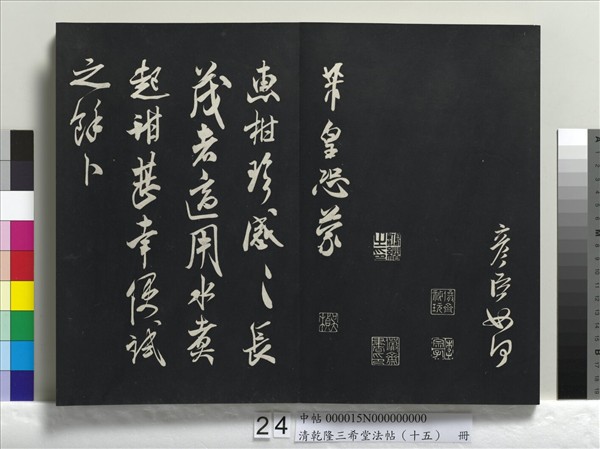 彥臣如何
芾皇恐蒙
惠柑珍感〻長
茂者適用水煑
起甜甚幸便試
之餘卜
24
中帖 000015N000000000
清乾隆三希堂法帖(十五) 冊